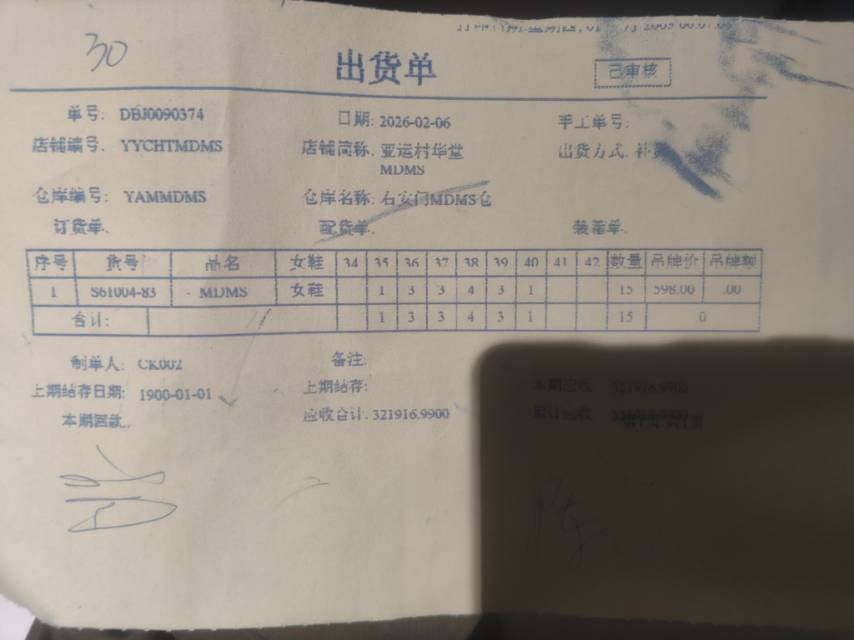 30
出货单
已审核
单号: DBJ0090374 日期: 2026-02-06 手工单号:
店铺编号. YYCHTMDMS 店铺简称. 亚运村华堂 出货方式. 补
MDMS
仓库编号: YAMMDMS 仓库名称: 右安门MDMS仓
订货单. 配货单. 装箱单.
序号 货号 品名 女鞋 34 35 36 37 38 39 40 41 42 数量 吊牌价 吊牌额
1 S61004-83 - MDMS 女鞋 1 3 3 4 3 1 15 598.00 .00
合计: 1 3 3 4 3 1 15 0
制单人: CK002 备注:
上期结存日期: 1900-01-01 上期结存: 本期应收. 321916.9900
本期回款. 应收合计. 321916.9900